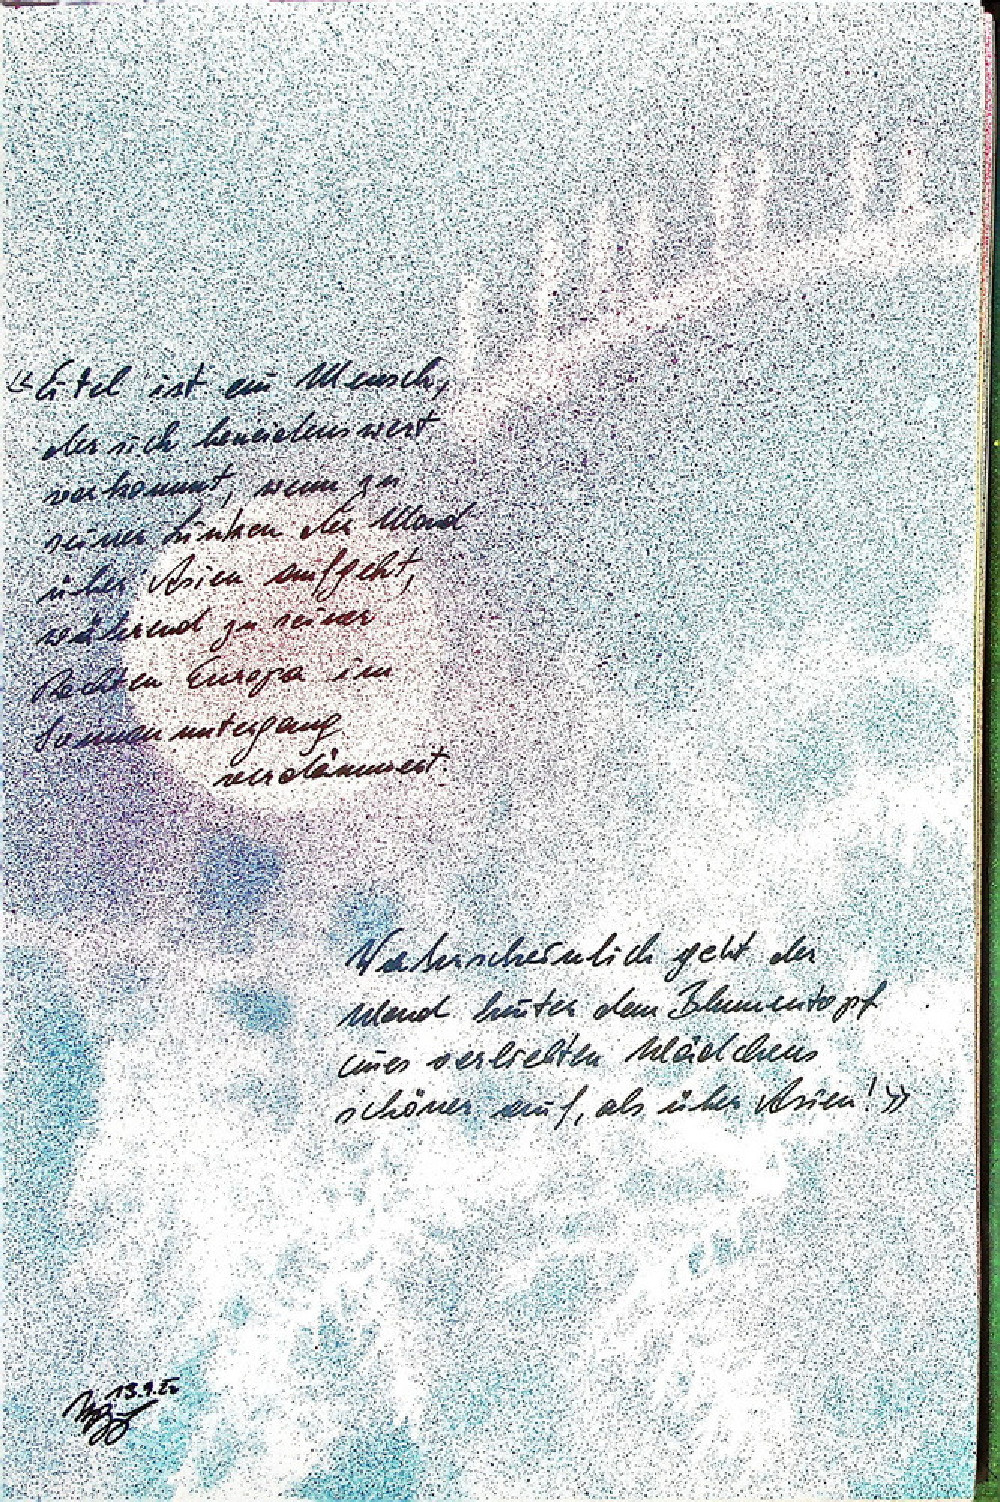 «Eitel ist ein Mensch,
der sich beneidenswert
vorkommt, wenn zu
seiner Linken der Mond
über Asien aufgeht,
während zu seiner
Rechten Europa im
Sonnenuntergang
verdämmert.
Wahrscheinlich geht der
Mond hinter dem Blumentopf
eines verliebten Mädchens
schöner auf, als über Asien!»